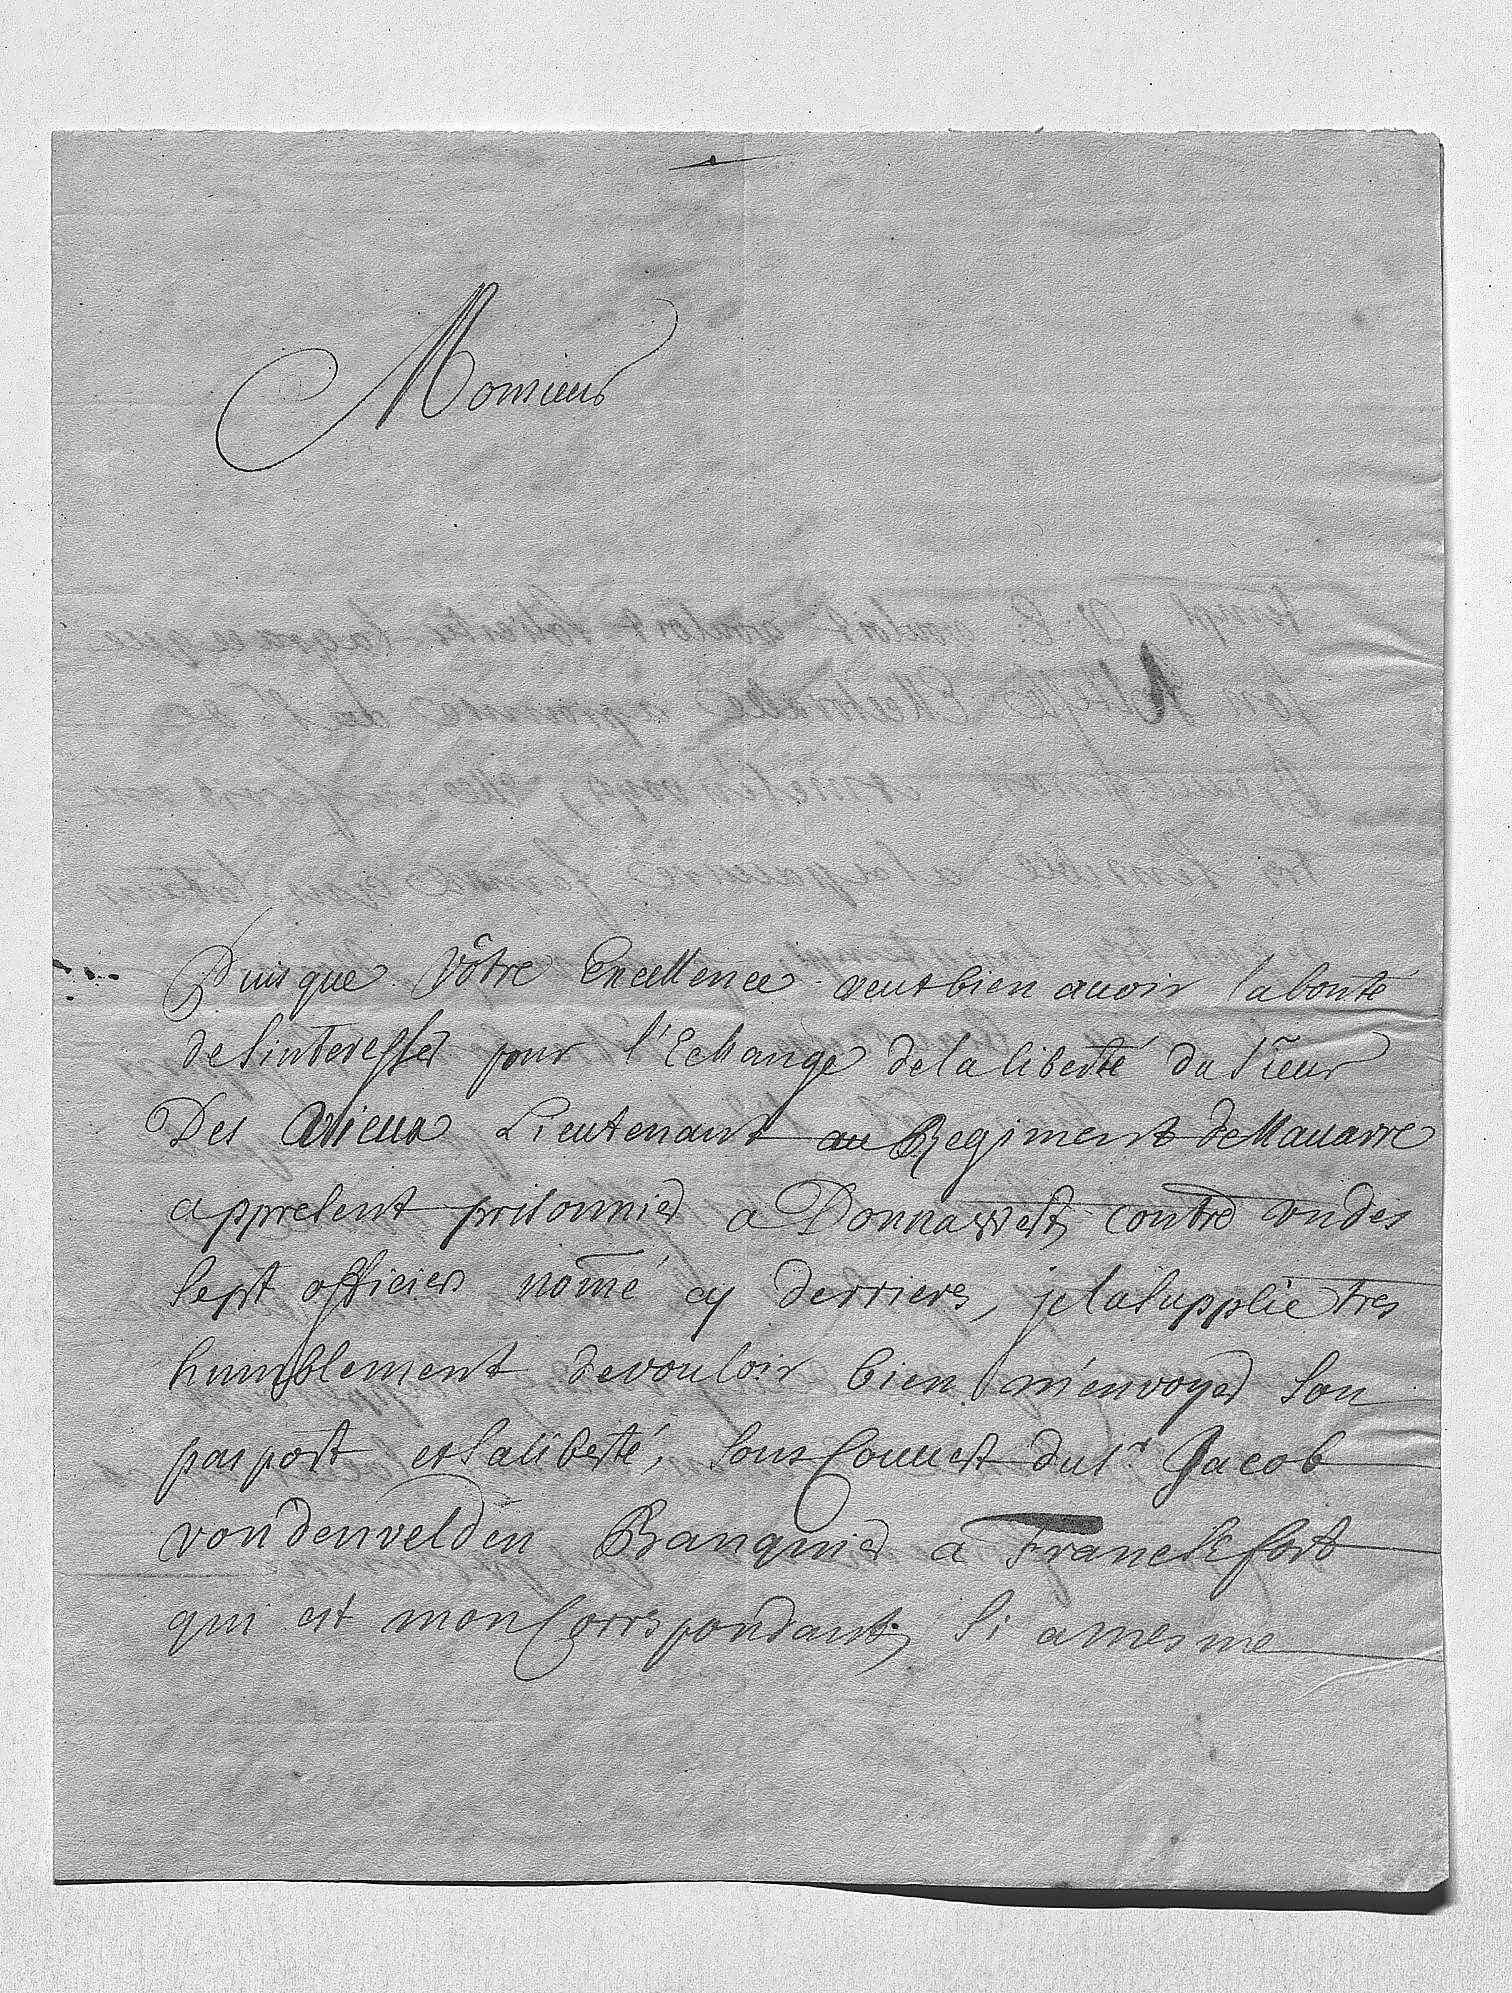 Monsieur
Puisque Vôtre Excellence veut bien auoir la bonté
de s'interesser pour l'Echange de la liberté du Sieur
Des Vieux Lieutenant au Regiment de Nauarre
apresent prisonnier a Donnawert, contre un des
sept officiers nōmé cy derriere, je la supplie tres
humblement de vouloir bien m'envoyer son
pasport et sa liberté, sous Couuert du Sr. Jacob
von denvelden Banquier a Franckfort
qui est mon Correspondant, Si a mesme